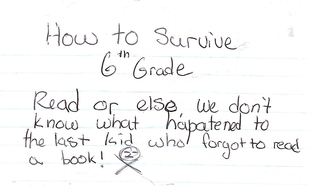 How to Survive
6th Grade
Read or else, we don't
know what hapatened to
the last kid who forgot to read
a book!